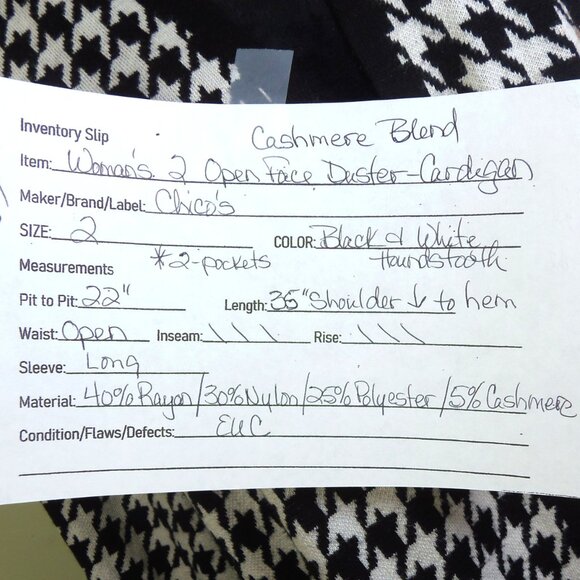 Inventory Slip Cashmere Blend
Item: Woman's 2 Open Face Duster-Cardigan
Maker/Brand/Label: Chico's
SIZE: 2 COLOR: Black & White
Measurements *2-pockets Houndstooth
Pit to Pit: 22" Length: 35" Shoulder ↓ to hem
Waist: Open Inseam: \ \ \ Rise: \ \ \
Sleeve: Long
Material: 40% Rayon/30% Nylon/25% Polyester/5% Cashmere
Condition/Flaws/Defects: EUC